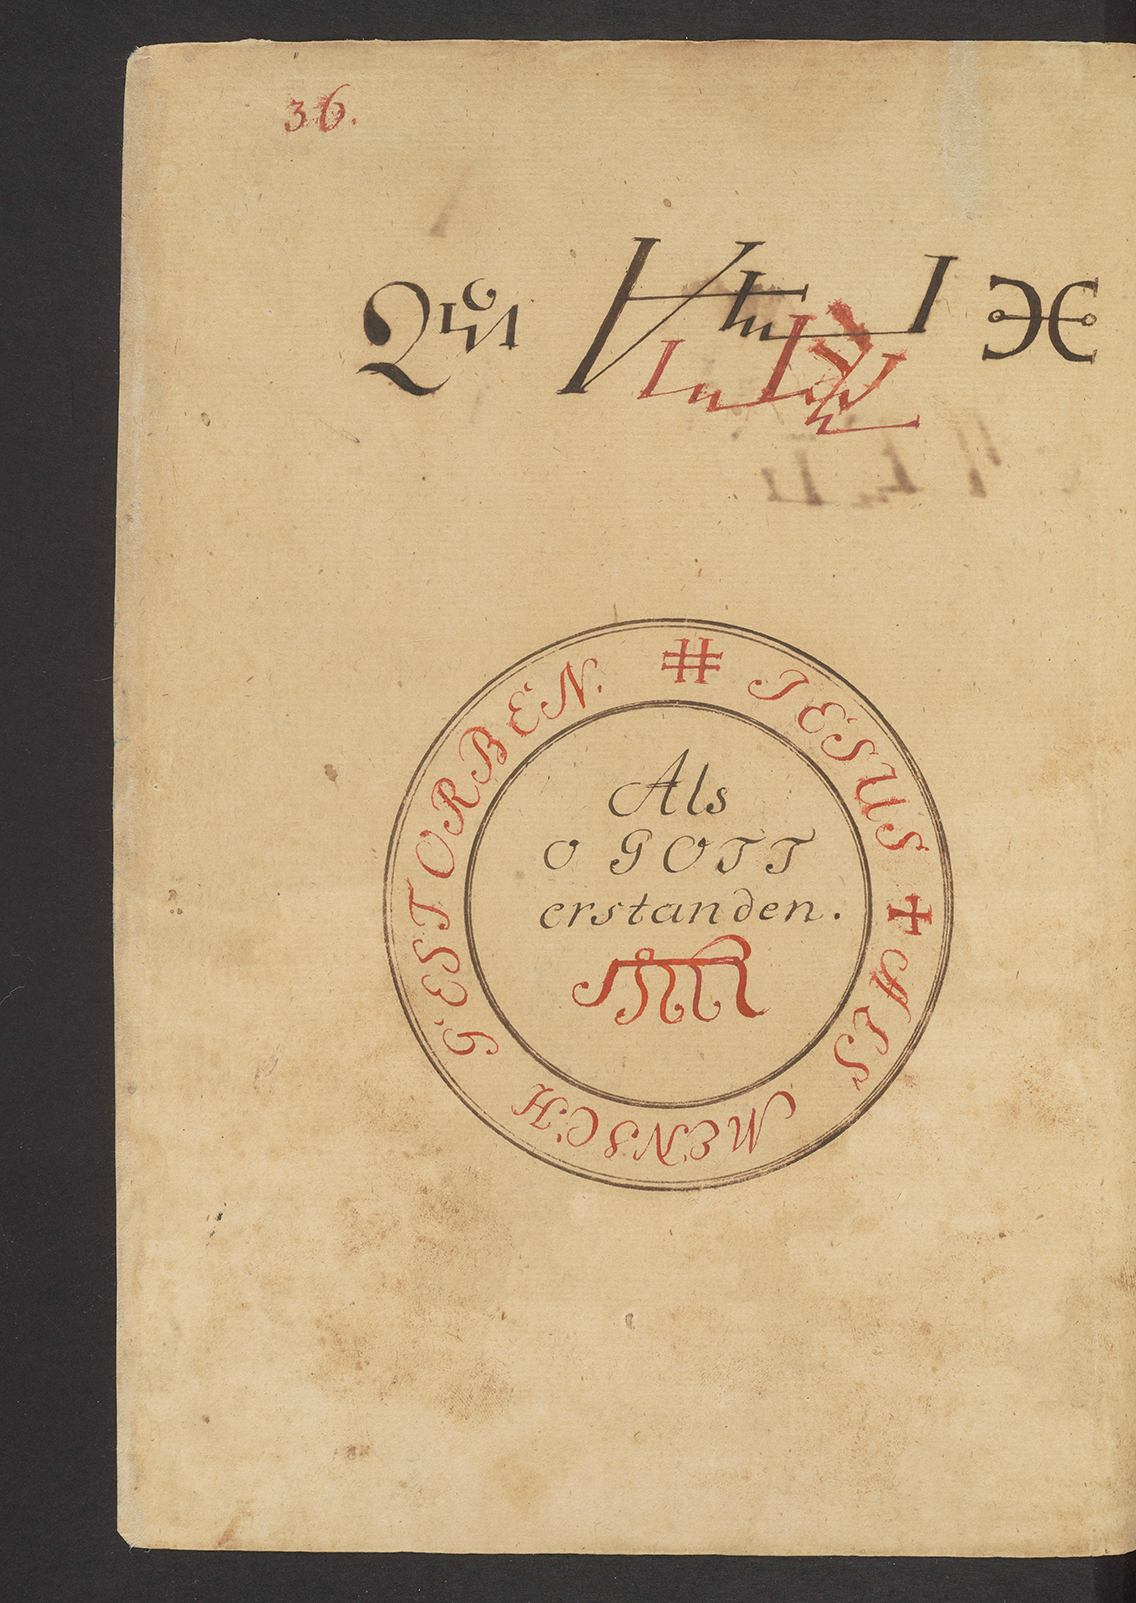 36.
JESUS ✠ ALS MENSCH GESTORBEN.
Als
O GOTT
erstanden.